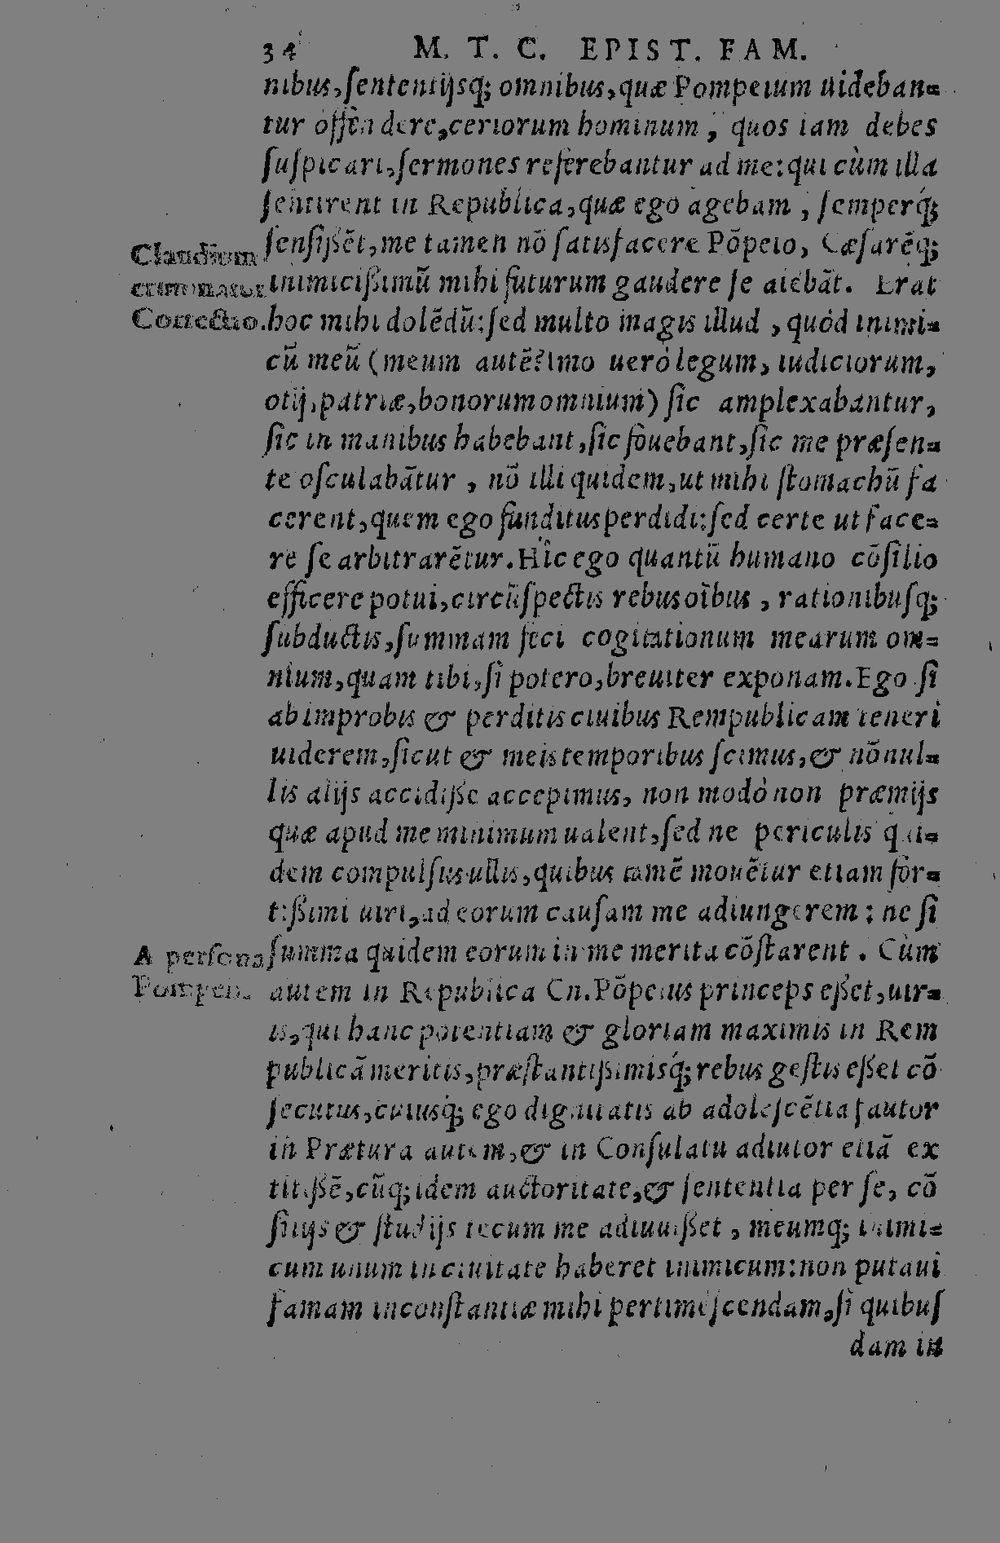 34 M. T. C. EPIST. FAM.
nibus, sententijsq; omnibus, quæ Pompeium uideban=
tur offẽndere, certorum hominum, quos iam debes
suspicari, sermones referebantur ad me: qui cùm illa
sentirent in Republica, quæ ego agebam, semperq́;
sensißẽt, me tamen nõ satisfacere Põpeio, Cæsarẽq;
Claudium
inimicißimũ mihi futurum gaudere se aiebãt. Erat
criminatur
Correctio.
hoc mihi dolẽdũ: sed multo magis illud, quòd inimi=
cũ meũ (meum autẽ? imo uerò legum, iudiciorum,
otij, patriæ, bonorum omnium) sic amplexabantur,
sic in manibus habebant, sic fouebant, sic me præsen=
te osculabãtur, nõ illi quidem, ut mihi stomachũ fa
cerent, quem ego funditus perdidi: sed certe ut face=
re se arbitrarẽtur. Hîc ego quantũ humano cõsilio
efficere potui, circũspectis rebus oĩbus, rationibusq;
subductis, summam feci cogitationum mearum om=
nium, quam tibi, si potero, breuiter exponam. Ego si
ab improbis & perditis ciuibus Rempublicam teneri
uiderem, sicut & meis temporibus scimus, & nõnul=
lis alijs accidisse accepimus, non modò non præmijs
quæ apud me minimum ualent, sed ne periculis qui=
dem compulsus ullis, quibus tamẽ mouẽtur etiam for=
tißimi uiri, ad eorum causam me adiungerem: ne si
A persona
summa quidem eorum in me merita cõstarent. Cùm
Pompeii.
autem in Republica Cn. Põpeius princeps eßet, uir=
is, qui hanc potentiam & gloriam maximis in Rem
publicã meritis, præstantißimisq́; rebus gestis eßet cõ
secutus, cuiusq́; ego dignitatis ab adolescẽtia fautor
in Prætura autem, & in Consulatu adiutor etiã ex
titißẽ, cũq; idem auctoritate, & sententia per se, cõ
silijs & studijs tecum me adiuuißet, meumq; inimi=
cum unum in ciuitate haberet inimicum: non putaui
famam inconstantiæ mihi pertimescendam, si quibus
dam in